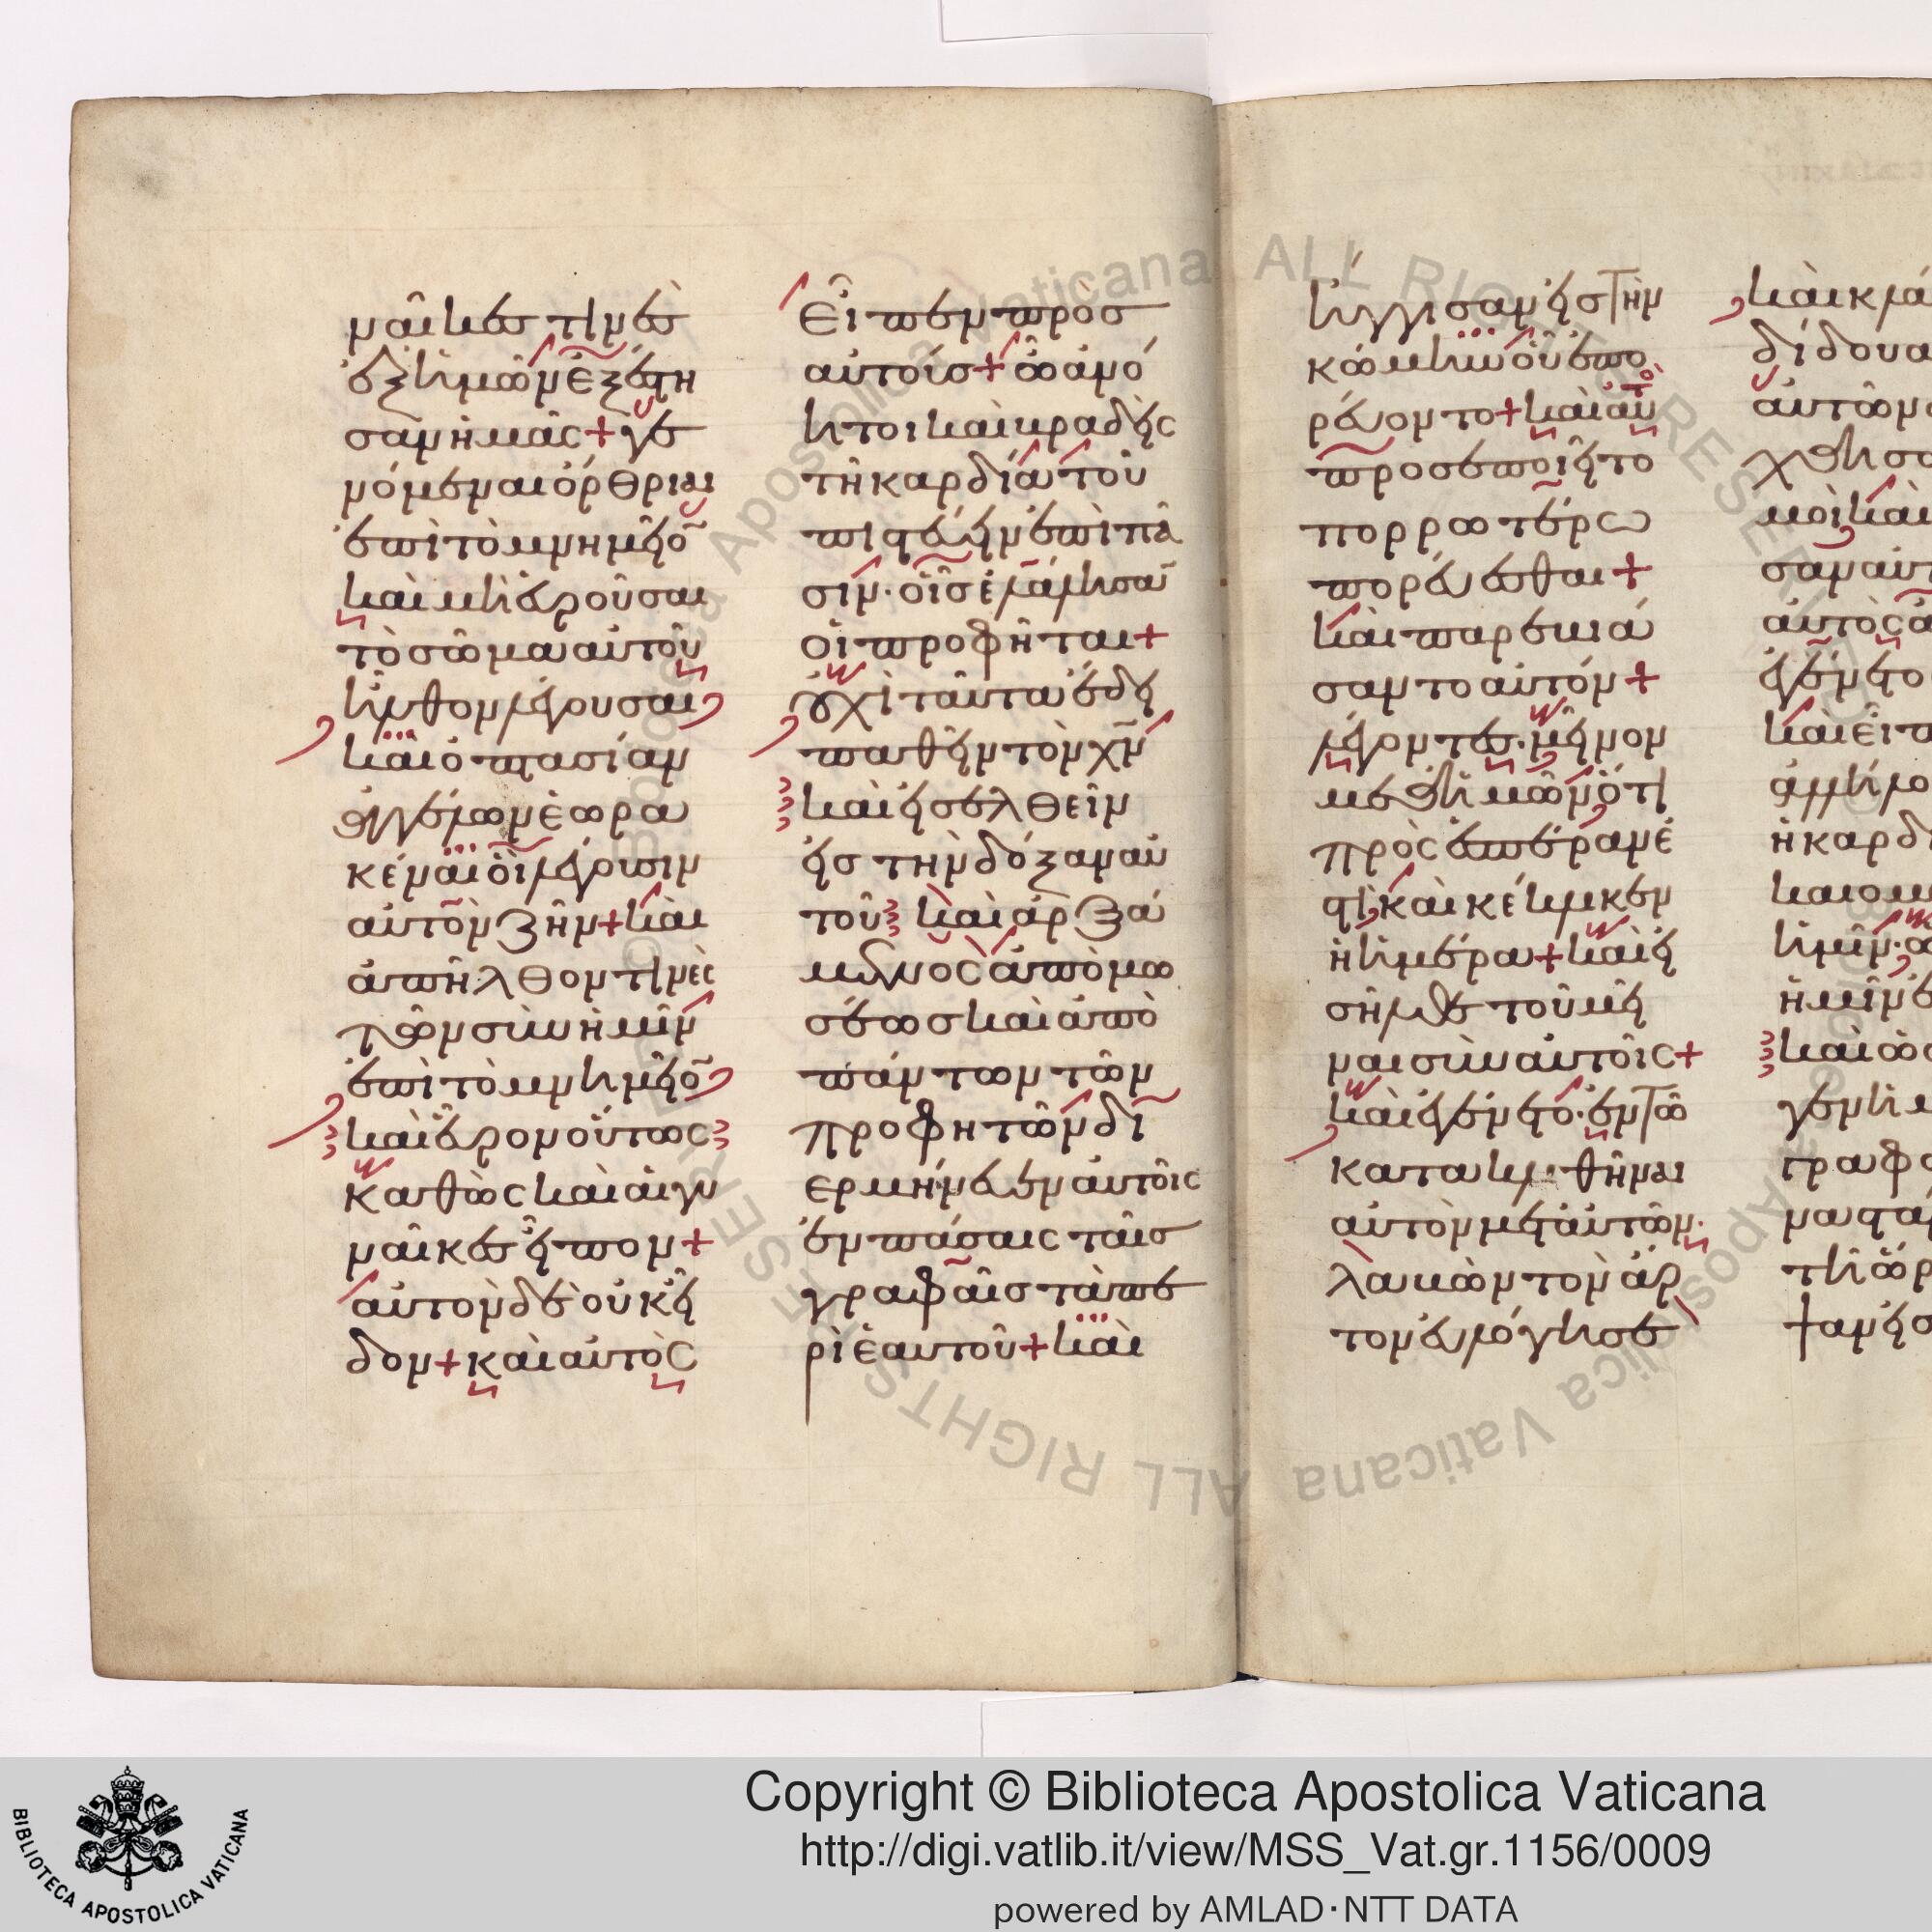 ναῖκες τινὲς
ἐξ ἡμῶν ἐξέστη
σαν ἡμᾶς + γε
νόμεναι ὄρθριαι
ἐπὶ τὸ μνημεῖο
καὶ μὴ εὑροῦσαι
τὸ σῶμα αὐτοῦ
ἦλθον λέγουσαι
καὶ ὀπτασίαν
ἀγγέλων ἑωρα
κέναι οἳ λέγουσιν
αὐτὸν ζῆν + καὶ
ἀπῆλθον τινὲς
τῶν σὺν ἡμῖν
ἐπὶ τὸ μνημεῖο
καὶ εὗρον οὕτως
καθὼς καὶ αἱ γυ
ναῖκες εἶπον +
αὐτὸν δὲ οὐκ εἶ
δον + καὶ αὐτὸς
Εἶπεν πρὸς
αὐτούς + ὦ ἀνό
ητοι καὶ βραδεῖς
τῇ καρδία τοῦ
πιστεύειν ἐπὶ πᾶ
σιν · οἷς ἐλάλησα
οἱ προφῆται +
οὐχὶ ταῦτα ἔδει
παθεῖν τὸν χν
καὶ εἰσελθεῖν
εἰς τὴν δόξαν αὐ
τοῦ καὶ ἀρξά
μενος ἀπὸ μω
σέως καὶ ἀπὸ
πάντων τῶν
προφητῶν δι
ερμήνευεν αὐτοῖς
ἐν πάσαις ταῖς
γραφαῖς τὰ πε
ρὶ ἑαυτοῦ + καὶ
ἤγγισαν εἰς τὴν
κώμην οὗ ἐπο
ρεύοντο + καὶ αὐτὸ
προσεποιεῖτο
πορρωτέρω
πορεύεσθαι +
καὶ παρεβιά
σαντο αὐτόν +
λέγοντες · μεῖνον
μεθ ἡμῶν ὅτι
πρὸς ἑσπέραν ἐ
στὶ καὶ κέκλικεν
ἡ ἡμέρα + καὶ εἰ
σῆλθε τοῦ μεῖ
ναι σὺν αὐτοῖς +
καὶ ἐγένετο · ἐν τῶ
κατακλιθῆναι
αὐτὸν μετ αὐτῶν ·
λαβὼν τὸν ἄρ
τον εὐλόγησε
καὶ κλά
δίδου
αὐτῶν
χθησα
μοὶ καὶ
σαν αὐτ
αὐτὸς ἀ
ἐγένετο
καὶ εἶπ
ἀλλήλο
ἡ καρδ
καιομ
ἡμῖν · ὡ
ἡμῖν ἐ
καὶ ὡσ
γεν ἡμ
γραφ
ναστα
τῆ ὥρ
ψαν εἰσ
Copyright © Biblioteca Apostolica Vaticana
http://digi.vatlib.it/view/MSS_Vat.gr.1156/0009
powered by AMLAD·NTT DATA
BIBLIOTECA APOSTOLICA VATICANA